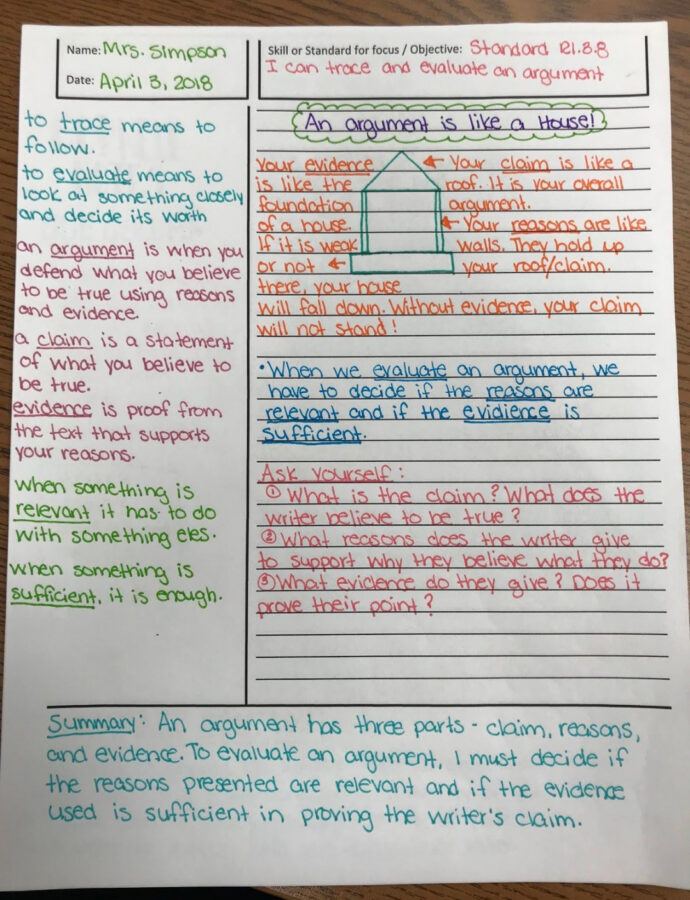 Name: Mrs. Simpson
Date: April 3, 2018
Skill or Standard for focus / Objective: Standard RI.8.8
I can trace and evaluate an argument
to trace means to
follow.
to evaluate means to
look at something closely
and decide its worth
an argument is when you
defend what you believe
to be true using reasons
and evidence.
a claim is a statement
of what you believe to
be true.
evidence is proof from
the text that supports
your reasons.
when something is
relevant it has to do
with something eles.
when something is
sufficient, it is enough.
An argument is like a House!
Your evidence
is like the
foundation
of a house.
If it is weak
or not
there, your house
will fall down. Without evidence, your claim
will not stand!
Your claim is like a
roof. It is your overall
argument.
Your reasons are like
walls. They hold up
your roof/claim.
• When we evaluate an argument, we
have to decide if the reasons are
relevant and if the evidience is
sufficient.
Ask yourself:
① What is the claim? What does the
writer believe to be true?
② What reasons does the writer give
to support why they believe what they do?
③ What evidence do they give? Does it
prove their point?
Summary: An argument has three parts - claim, reasons,
and evidence. To evaluate an argument, I must decide if
the reasons presented are relevant and if the evidence
used is sufficient in proving the writer's claim.